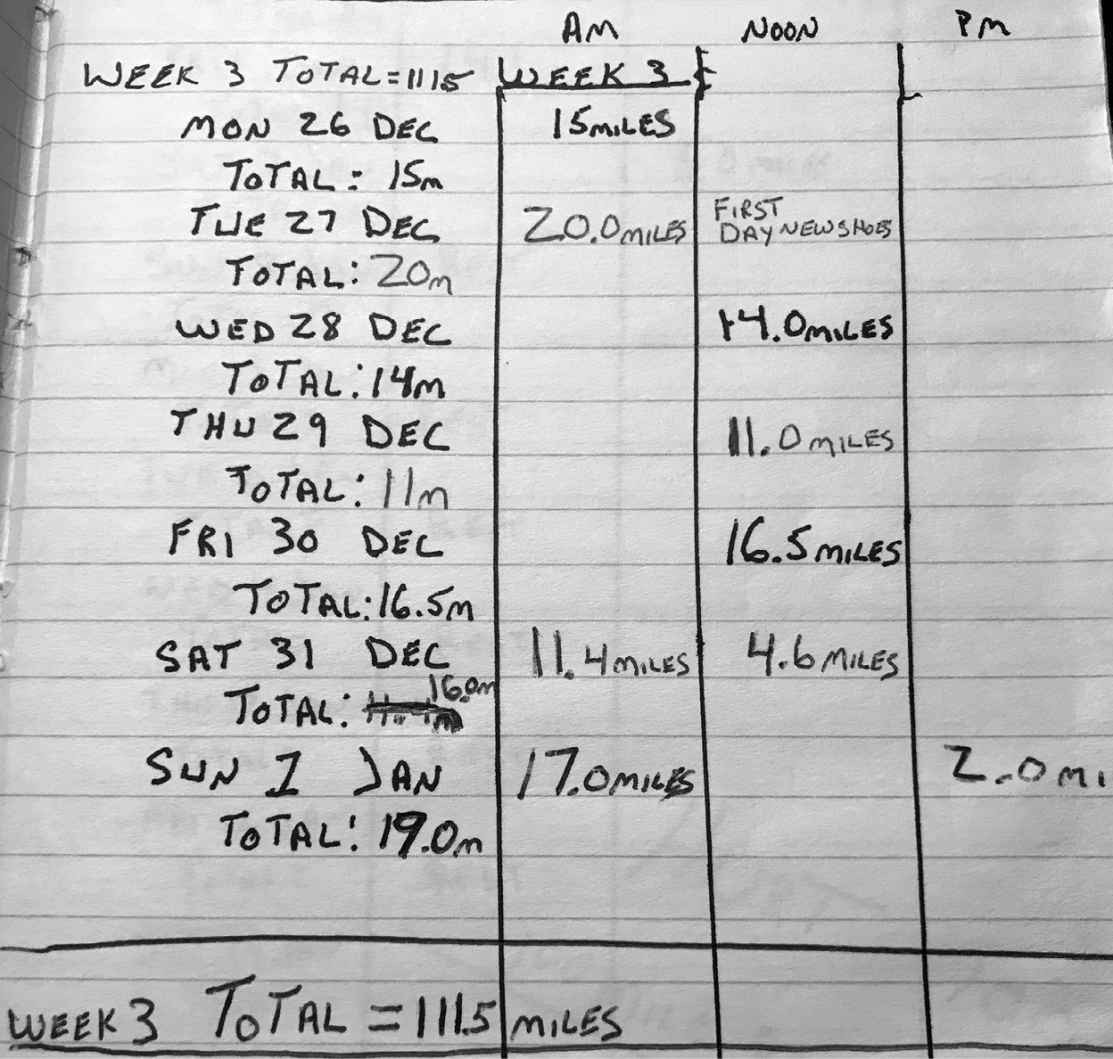 AM NOON PM
WEEK 3 TOTAL=1115 WEEK 3
MON 26 DEC 15MILES
TOTAL: 15m
TUE 27 DEC 20.0MILES FIRST DAY NEW SHOES
TOTAL: 20m
WED 28 DEC 14.0MILES
TOTAL: 14m
THU 29 DEC 11.0MILES
TOTAL: 11m
FRI 30 DEC 16.5MILES
TOTAL: 16.5m
SAT 31 DEC 11.4MILES 4.6MILES
TOTAL: 16.0m
SUN 1 JAN 17.0MILES 2.0 MI
TOTAL: 19.0m
WEEK 3 TOTAL = 111.5 MILES